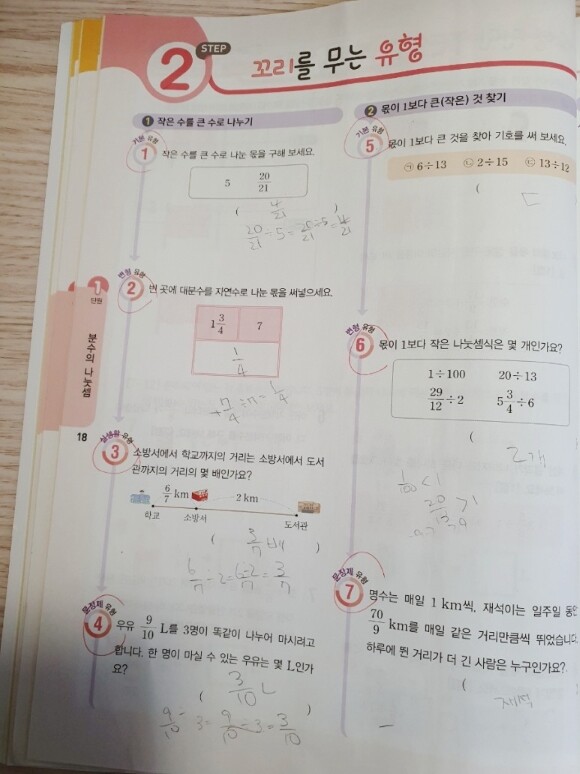 2 STEP 꼬리를 무는 유형
1 작은 수를 큰 수로 나누기
기본 유형
1 작은 수를 큰 수로 나눈 몫을 구해 보세요.
5 20/21
( 4/21 )
20/21 ÷ 5 = 20÷5/21 = 4/21
변형 유형
2 빈 곳에 대분수를 자연수로 나눈 몫을 써넣으세요.
1 3/4 7
1/4
7/4 ÷ 7 = 1/4
1 단원
분수의 나눗셈
18
실생활 유형
3 소방서에서 학교까지의 거리는 소방서에서 도서
관까지의 거리의 몇 배인가요?
6/7 km 2 km
학교 소방서 도서관
( 3/7 배 )
6/7 ÷ 2 = 6÷2/7 = 3/7
문장제 유형
4 우유 9/10 L를 3명이 똑같이 나누어 마시려고
합니다. 한 명이 마실 수 있는 우유는 몇 L인가
요?
( 3/10 L )
9/10 ÷ 3 = 9÷3/10 = 3/10
2 몫이 1보다 큰(작은) 것 찾기
기본 유형
5 몫이 1보다 큰 것을 찾아 기호를 써 보세요.
㉠ 6÷13 ㉡ 2÷15 ㉢ 13÷12
( ㄷ
변형 유형
6 몫이 1보다 작은 나눗셈식은 몇 개인가요?
1÷100 20÷13
29/12 ÷2 5 3/4 ÷6
( 2개
1/100 < 1
20/13 > 1
문장제 유형
7 명수는 매일 1 km씩, 재석이는 일주일 동안
70/9 km를 매일 같은 거리만큼씩 뛰었습니다.
하루에 뛴 거리가 더 긴 사람은 누구인가요?
( 재석